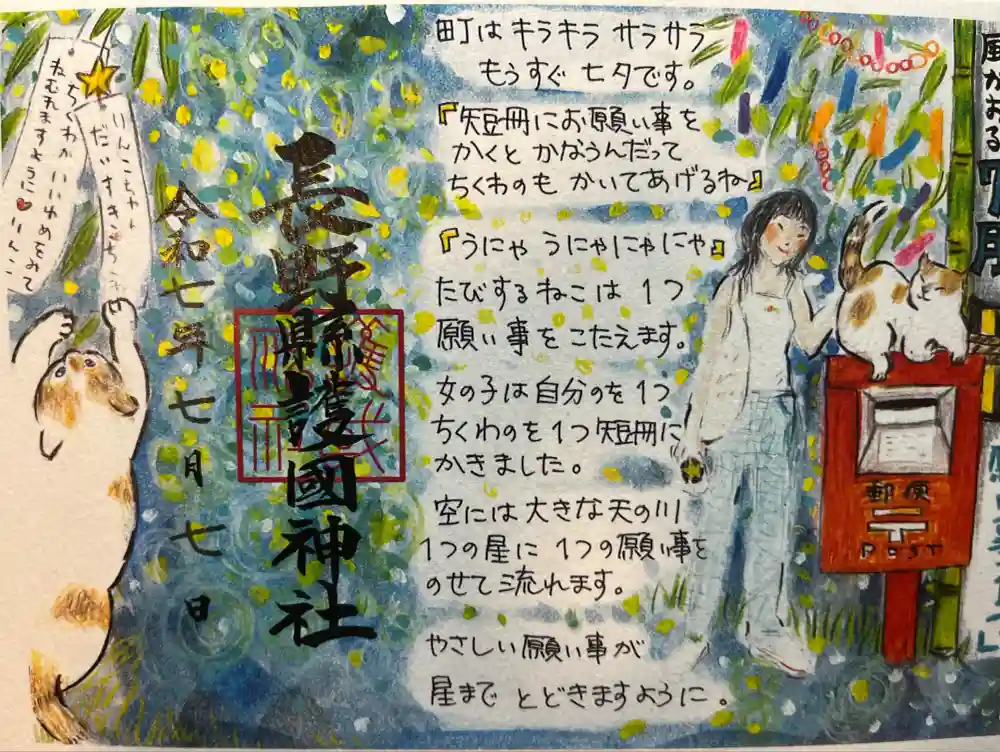 町は キラキラ サラサラ
もうすぐ 七夕です。
『短冊にお願い事を
かくと かなうんだって
ちくわのも かいてあげるね』
『うにゃ うにゃにゃにゃ』
たびするねこは 1つ
願い事をこたえます。
女の子は自分のを1つ
ちくわのを1つ短冊に
かきました。
空には大きな天の川
1つの星に 1つの願い事を
のせて流れます。
やさしい願い事が
星まで とどきますように。
長野縣護國神社
令和七年七月七日
ちくわがいいゆめをみて
ねむれますように♥りんこ
りんこちゃん
だいすき
風かおる7月
郵便
〒
POST